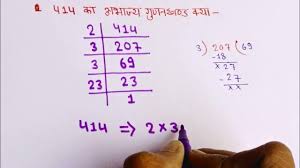 414 का अभाज्य गुणनखण्ड क्या -
2 | 414
3 | 207
3 | 69
23 | 23
1
3) 207 (69
-18
x27
-27
xx
414 ⇒ 2×3